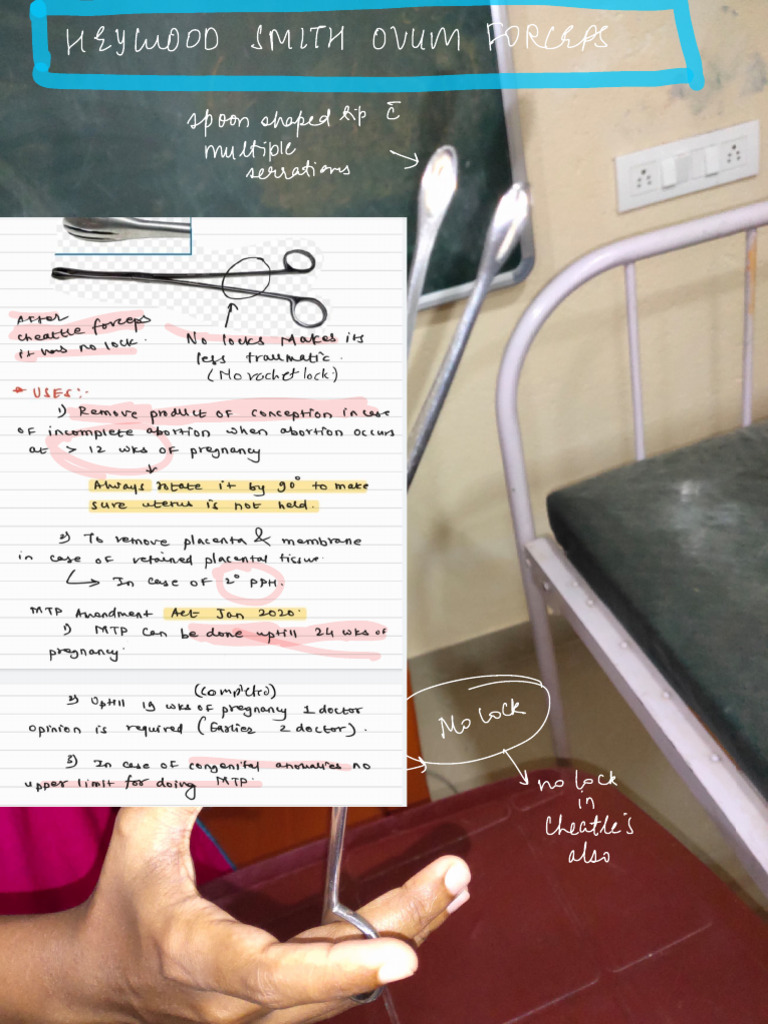 HEYWOOD SMITH OVUM FORCEPS
spoon shaped tip c̄
multiple
serrations
After
cheattle forceps
it has no lock.
No locks makes its
less traumatic.
(No rachet lock)
* USES:-
1) Remove product of conception in case
of incomplete abortion when abortion occurs
at > 12 wks of pregnancy
Always rotate it by 90° to make
sure uterus is not held.
2) To remove placenta & membrane
in case of retained placental tissue.
In case of 2° PPH.
MTP Amendment Act Jan 2020:
1) MTP can be done uptill 24 wks of
pregnancy.
(completed)
2) Uptill 19 wks of pregnancy 1 doctor
opinion is required (Earlier 2 doctor).
3) In case of congenital anomalies no
upper limit for doing MTP.
No lock
no lock
in
Cheatle's
also